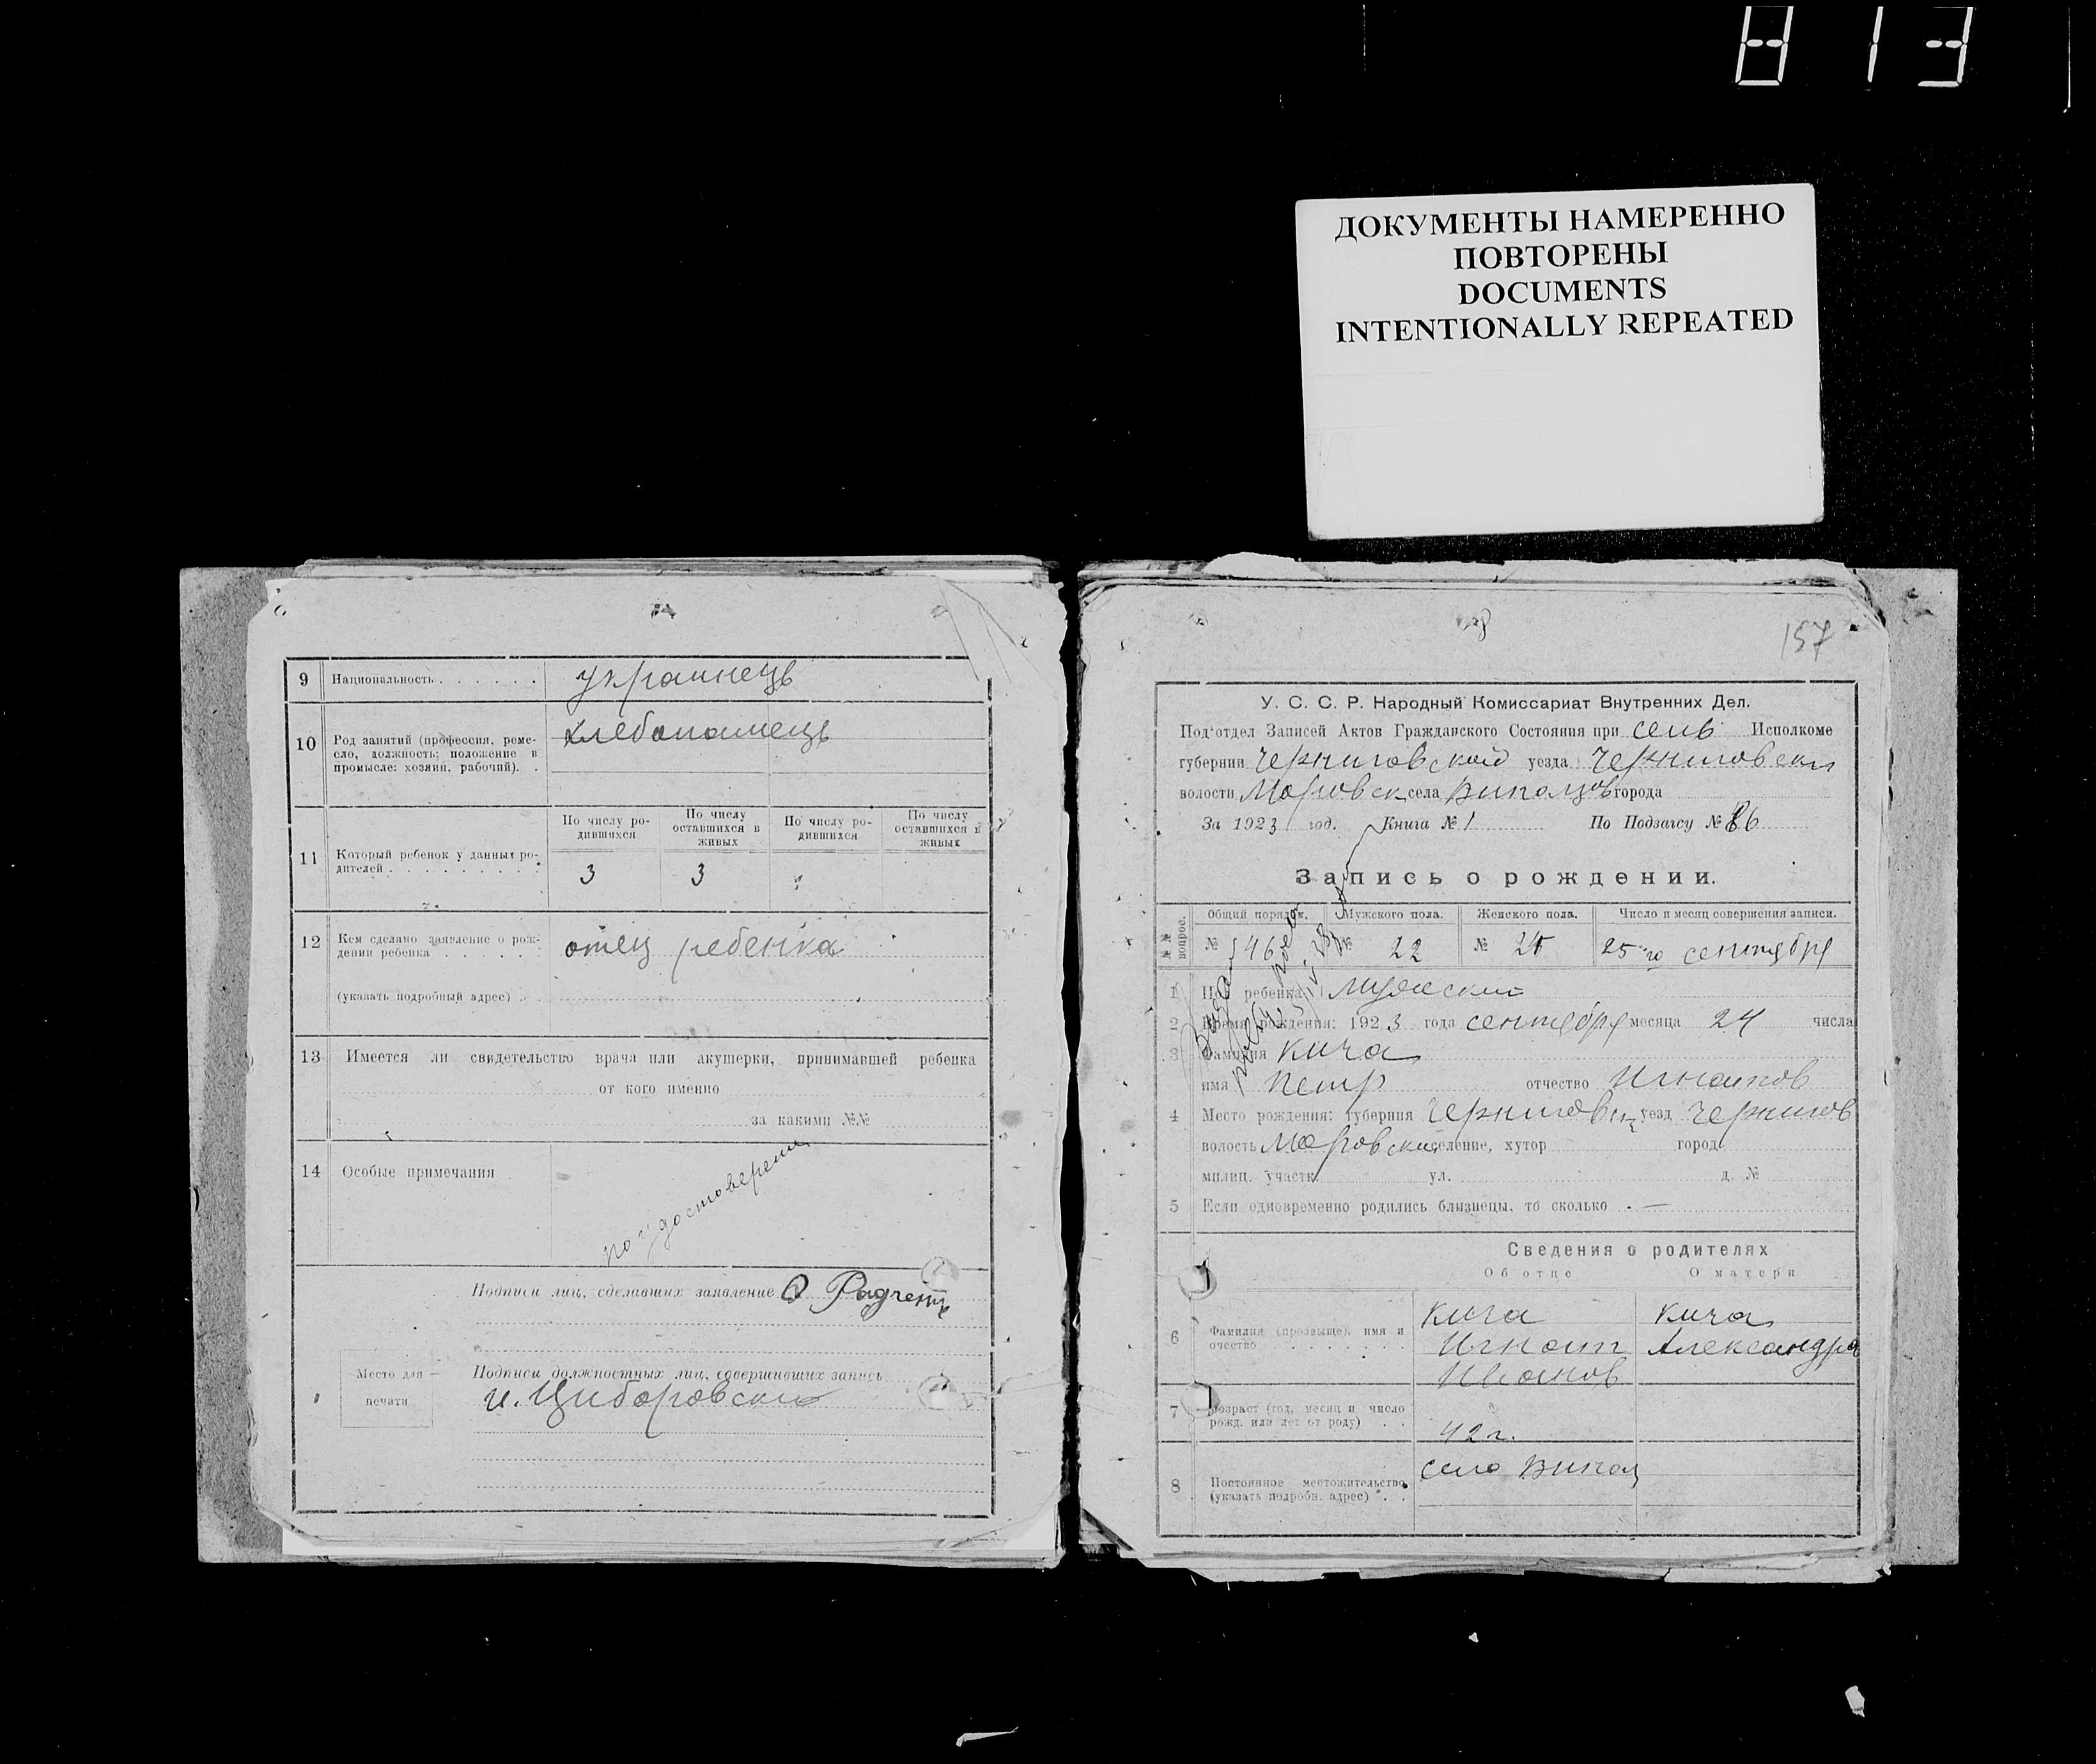 813
ДОКУМЕНТЫ НАМЕРЕННО
ПОВТОРЕНЫ
DOCUMENTS
INTENTIONALLY REPEATED
9 Национальность . . . . . . украинецъ
10 Род занятий (профессия, реме-
сло, должность; положение в
промысле: хозяин, рабочий). . хлебопашецъ
11 Который ребенок у данных ро-
дителей . . . . . . . . .
По числу ро-
дившихся
По числу
оставшихся в
живых
По числу ро-
дившихся
По числу
оставшихся в
живых
3 3
12 Кем сделано заявление о рож-
дении ребенка . . . . . . отец ребенка
(указать подробный адрес) . .
13 Имеется ли свидетельство врача или акушерки, принимавшей ребенка
от кого именно
за какими №№
14 Особые примечания
по удостоверении
Подписи лиц, сделавших заявление
Место для
печати
Подписи должностных лиц, совершивших запись
и. Циборовски
157
У. С. С. Р. Народный Комиссариат Внутренних Дел.
Под'отдел Записей Актов Гражданского Состояния при селв Исполкоме
губернии Черниговской уезда Черниговски
волости села города
За 1923 год. Книга № 1 По Подзагсу № 86
Запись о рождении.
№№ вопрос.
Общий порядок. Мужского пола. Женского пола. Число и месяц совершения записи.
№ 46 № 22 № 25 го сентября
1 Пол ребенка мужский
2 Время рождения: 1923 года сентября месяца 24 числа
3 Фамилия Кича
имя Петр отчество Игнатов
4 Место рождения: губерния Черниговск уезд Чернигов
волость селение, хутор город
милиц. участк. ул. д. №
5 Если одновременно родились близнецы, то сколько . —
Сведения о родителях
Об отце О матери
6 Фамилия (прозвыще), имя и
очество . . . . . . . .
Кича
Игнат
Иванов
Кича
Александра
7 Возраст (год, месяц и число
рожд. или лет от роду) . .
42 г.
8 Постоянное местожительство
(указать подробн. адрес) . .
село